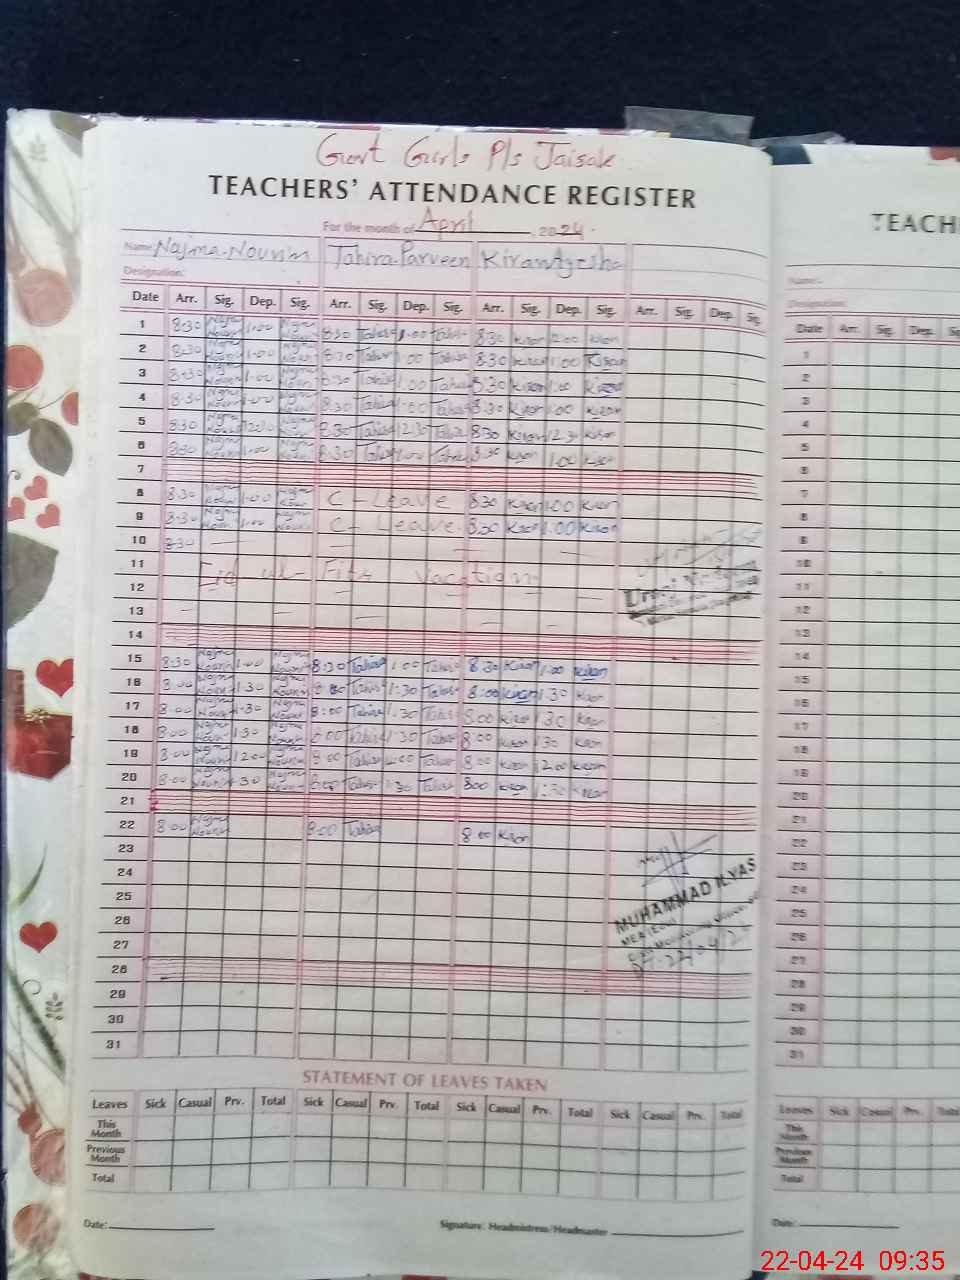 Govt Girls P/s Jaisak
TEACHERS' ATTENDANCE REGISTER
For the month of April, 2024.
Name: Najma Nourin Tahira Parveen Kiran Ayesha
Designation:
Date Arr. Sig. Dep. Sig. Arr. Sig. Dep. Sig. Arr. Sig. Dep. Sig. Arr. Sig. Dep. Sig.
1 8:30 Najma Nourin 1:00 Najma Nourin 8:30 Tahira 1:00 Tahira 8:30 Kiran Kiran
2 8:30 Najma Nourin 1:00 Najma Nourin 8:30 Tahira 1:00 Tahira 8:30 Kiran 1:00 Kiran
3 8:30 Najma Nourin 1:00 Najma Nourin 8:30 Tahira 1:00 Tahira 8:30 Kiran 1:00 Kiran
4 8:30 Najma Nourin 1:00 Najma Nourin 8:30 Tahira 1:00 Tahira 8:30 Kiran 1:00 Kiran
5 8:30 Najma Nourin Najma Nourin 8:30 Tahira 12:30 Tahira 8:30 Kiran 12:30 Kiran
6 8:30 Najma Nourin 1:00 Najma Nourin 8:30 Tahira 1:00 Tahira 8:30 Kiran 1:00 Kiran
7
8 8:30 Najma Nourin 1:00 Najma Nourin C-Leave 8:30 Kiran 1:00 Kiran
9 8:30 Najma Nourin 1:00 Najma Nourin C-Leave 8:30 Kiran 1:00 Kiran
10 8:30
11 Eid-ul-Fitr vacation
12
13
14
15 8:30 Najma Nourin 1:00 Najma Nourin 8:30 Tahira 1:00 Tahira 8:30 Kiran 1:00 Kiran
16 8:00 Najma Nourin 1:30 Najma Nourin 8:00 Tahira 1:30 Tahira 8:00 Kiran 1:30 Kiran
17 8:00 Najma Nourin 1:30 Najma Nourin 8:00 Tahira 1:30 Tahira 8:00 Kiran 1:30 Kiran
18 8:00 Najma Nourin 1:30 Najma Nourin 8:00 Tahira 1:30 Tahira 8:00 Kiran 1:30 Kiran
19 8:00 Najma Nourin 12:00 Najma Nourin 8:00 Tahira 12:00 Tahira 8:00 Kiran 12:00 Kiran
20 8:00 Najma Nourin 1:30 Najma Nourin 8:00 Tahira 1:30 Tahira 8:00 Kiran 1:30 Kiran
21
22 8:00 Najma Nourin 8:00 Tahira 8:00 Kiran
23
24
25
MUHAMMAD ILYAS
26
MEA (Edu)
27
28
29
30
31
STATEMENT OF LEAVES TAKEN
Leaves Sick Casual Prv. Total Sick Casual Prv. Total Sick Casual Prv. Total Sick Casual Prv. Total
This Month
Previous Month
Total
Date: Signature: Headmistress/Headmaster
TEACH
Name:
Designation:
Date Arr. Sig. Dep. Sig.
1
2
3
4
5
6
7
8
9
10
11
12
13
14
15
16
17
18
19
20
21
22
23
24
25
26
27
28
29
30
31
Leaves Sick Casual Prv. Total
This Month
Previous Month
Total
Date:
22-04-24 09:35